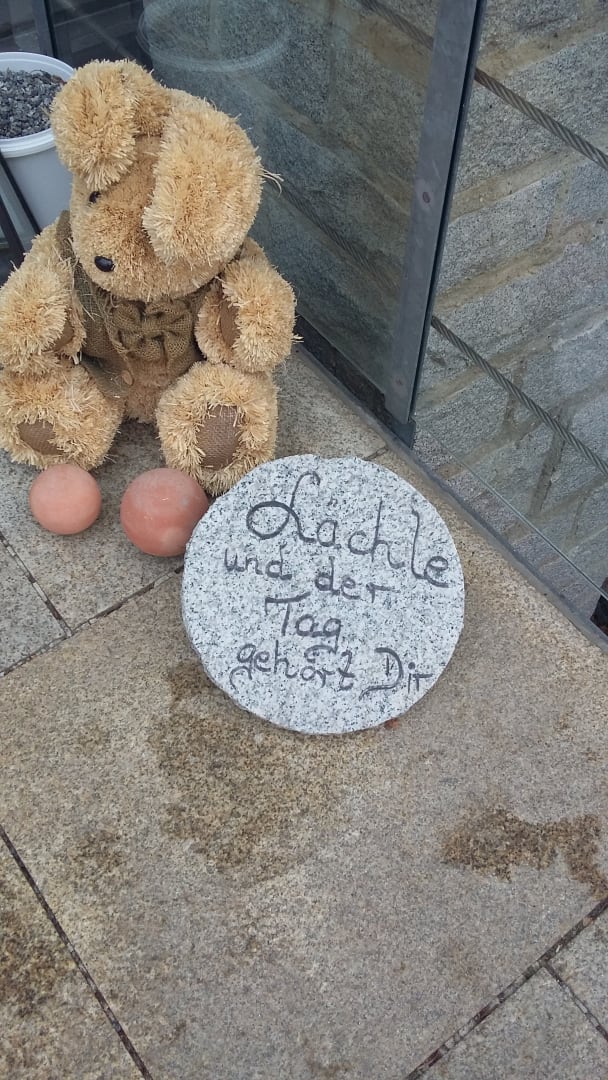 Lächle
und der
Tag
gehört Dir